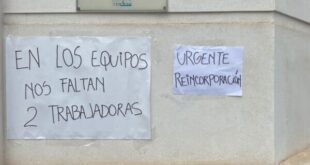 EN LOS EQUIPOS
NOS FALTAN
2 TRABAJADORAS
URGENTE
REINCORPORACIÓN